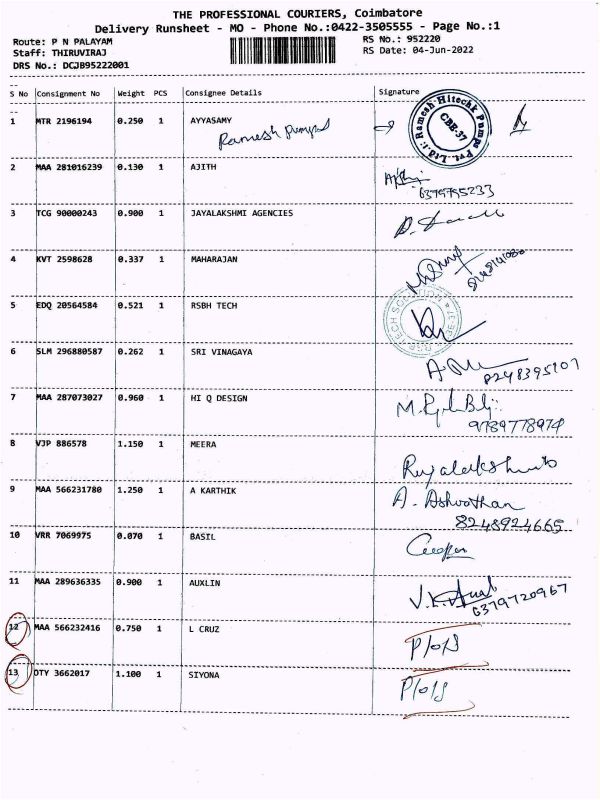 THE PROFESSIONAL COURIERS, Coimbatore
Delivery Runsheet - MO - Phone No.:0422-3505555 - Page No.:1
Route: P N PALAYAM RS No.: 952220
Staff: THIRUVIRAJ RS Date: 04-Jun-2022
DRS No.: DCJB95222001
S No Consignment No Weight PCS Consignee Details Signature
1 MTR 2196194 0.250 1 AYYASAMY
Ramesh pumps
Ramesh Hitechk Pumps Pvt. Ltd.
CBE-37
2 MAA 281016239 0.130 1 AJITH
6379795233
3 TCG 90000243 0.900 1 JAYALAKSHMI AGENCIES
4 KVT 2598628 0.337 1 MAHARAJAN
5 EDQ 20564584 0.521 1 RSBH TECH
6 SLM 296880587 0.262 1 SRI VINAGAYA
8248395107
7 MAA 287073027 0.960 1 HI Q DESIGN
9789778974
8 VJP 886578 1.150 1 MEERA
9 MAA 566231780 1.250 1 A KARTHIK
A. Ashvothan
8248924665
10 VRR 7069975 0.070 1 BASIL
11 MAA 289636335 0.900 1 AUXLIN
6379720967
12 MAA 566232416 0.750 1 L CRUZ
P/o/s
13 DTY 3662017 1.100 1 SIYONA
P/o/s